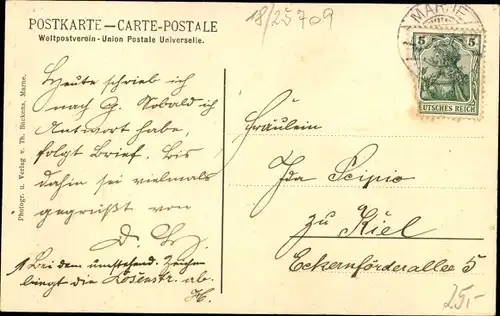 18/25709
POSTKARTE — CARTE-POSTALE
Weltpostverein - Union Postale Universelle.
MARNE
5 5
DEUTSCHES REICH
Heute schrieb ich
nach G. Sobald ich
Antwort habe,
folgt Brief. Bis
dahin sei vielmals
gegrüßt von
D.
Bei dem umstehend. Zeichen
biegt die Österstr. ab.
H.
Fräulein
Ida Scipio
zu Kiel
Eckernförderallee 5
25,-
Photogr. u. Verlag v. Th. Backens, Marne.